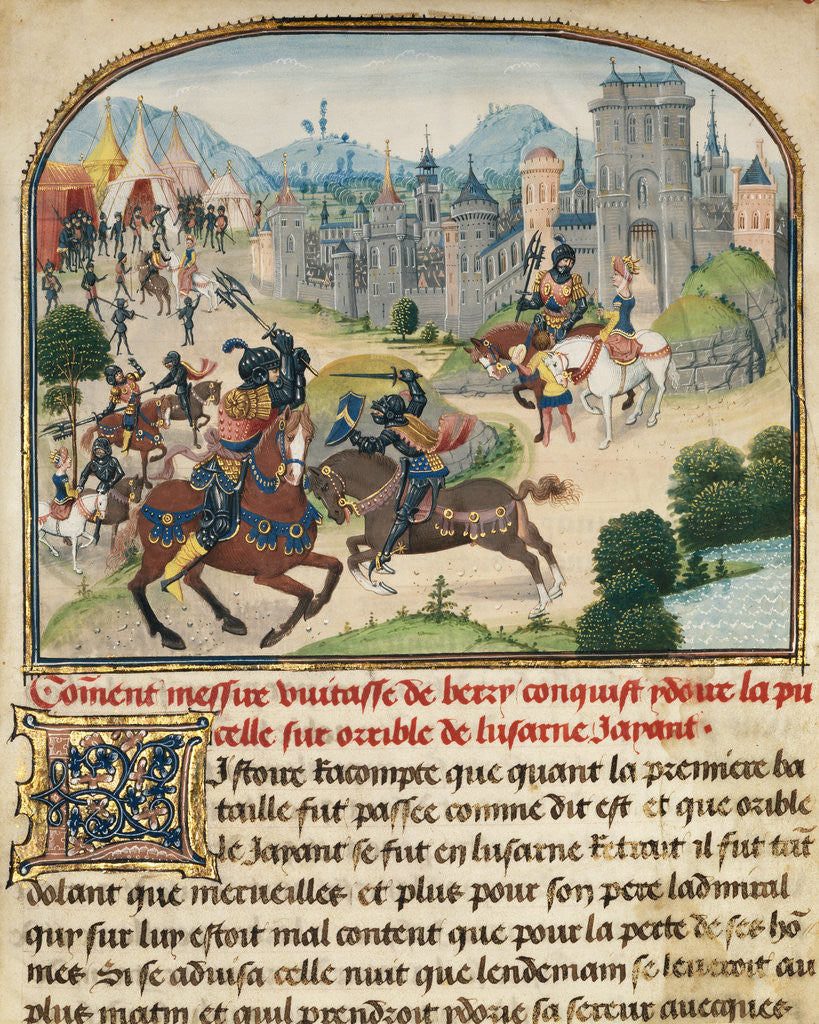 Com̄ent messire vuitasse de berry conquist ydoire la pu
celle sur orrible de lusarne Jayant.
Listoire Racompte que quant la premiere ba
taille fut passee comme dit est et que orible
le Jayant se fut en lusarne Retrait il fut tāt
dolant que merueilles et plus pour son pere ladmiral
quy sur luy estoit mal content que pour la perte de ses hō
mes Si se aduisa celle nuit que lendemain se leueroit au
plus matin et quil prendroit ydorie sa sereur auecques